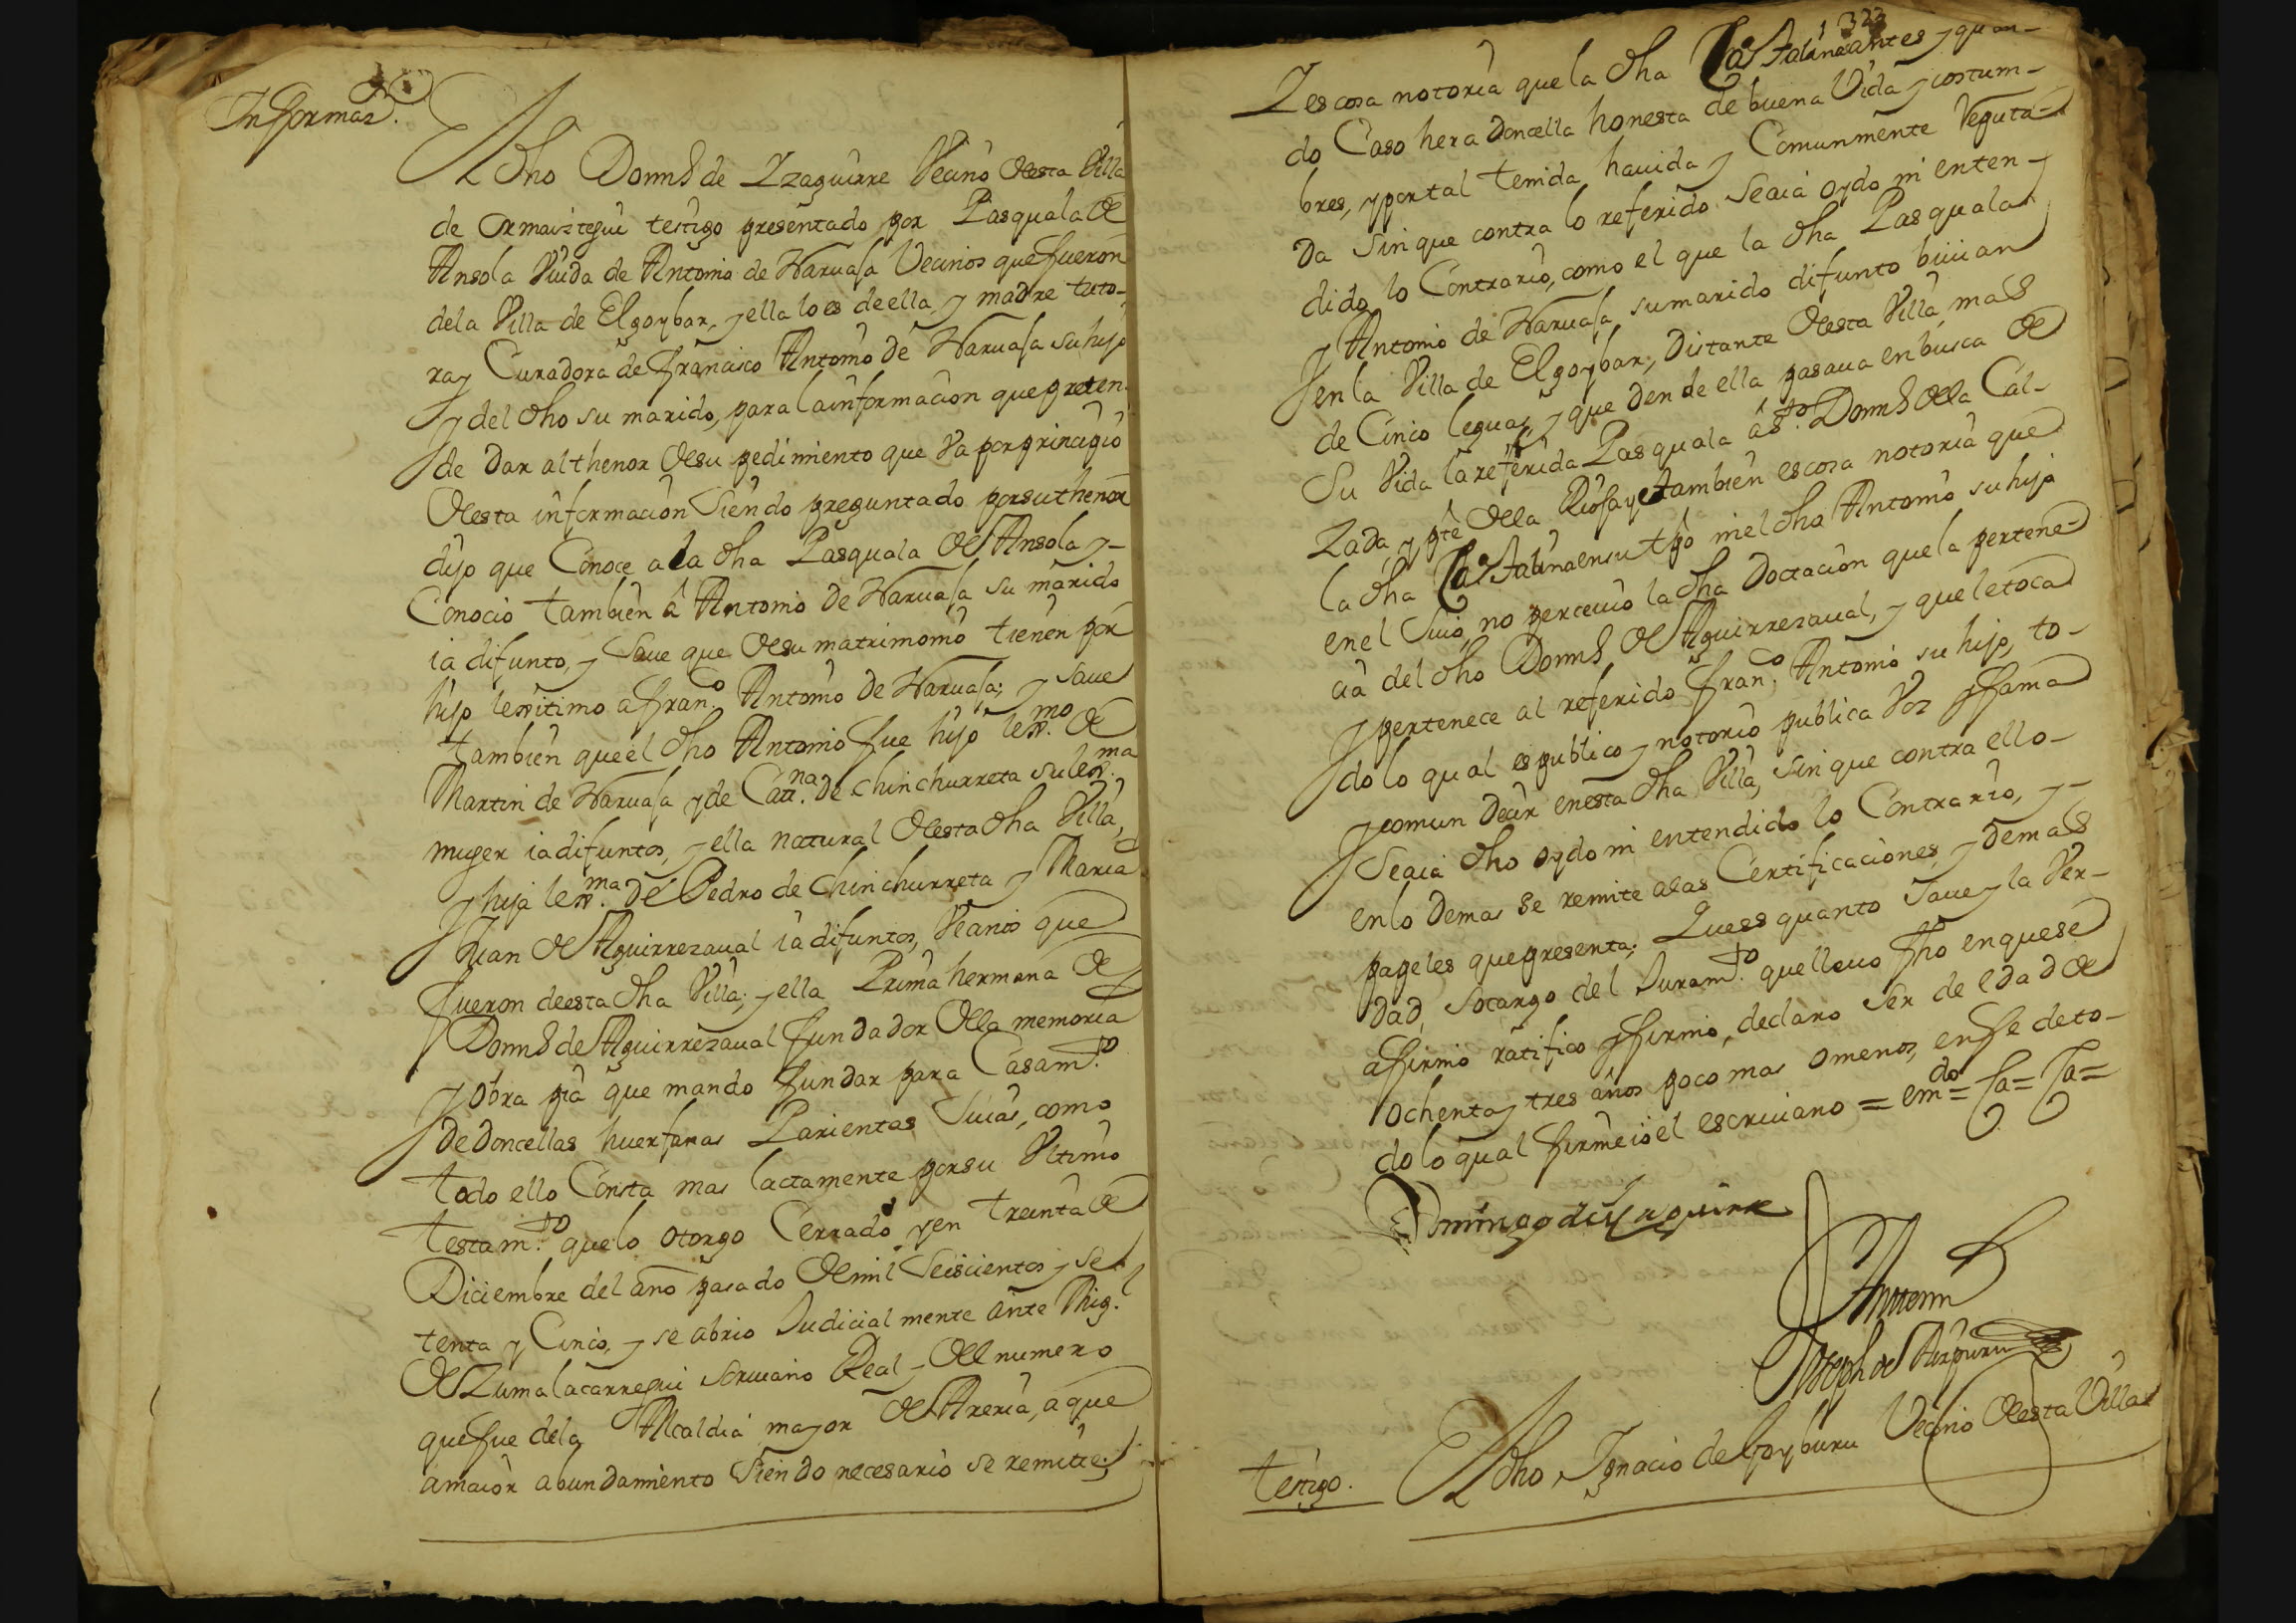 Informaon.
El dho Domingo de Yzaguirre Vecino desta Villa
de ormaiztegui testigo presentado por Pasquala de
Ansola Viuda de Antonio de Narua͟ſa Vecinos que fueron
dela Villa de Elgoybar, y ella lo es de ella, y madre tuto-
ra y Curadora de francisco Antonio de Naruasa su hijo
y del dho su marido, para la informacion que preten-
de dar al thenor desu pedimiento que Va por principio
desta informacion Siendo preguntado por su thenor
dijo que Conoce a la dha Pasquala de Ansola y-
Conocio tambien â Antonio de Naruasa su marido
ia difunto, y Saue que desu matrimonio tienen por
hijo lexitimo a franco. Antonio de Naruasa; y saue
tambien que el dho Antonio fue hijo lexmo. de
Martin de Naruasa y de Catna. de chinchurreta su lexma.
muger ia difuntos, y ella natural desta dha Villa,
y hija lexma. de Pedro de chinchurreta y Maria
Juan de Aguirrezaual ia difuntos, Vecinos que
fueron de esta dha Villa; y ella Prima hermana de
Domingo de Aguirrezaual fundador dela memoria
y obra pia que mando fundar para Casamto.
de doncellas huerfanas Parientas Suias, como
todo ello Consta mas lactamente por su Vltimo
testamto. que lo otorgo Cerrado y en treinta de
Diciembre del año pasado de mil Seiscientos y se-
tenta y Cinco, y se abrio Judicialmente ante Migl.
de Zumalacarregui scriuano Real y del numero
que fue dela Alcaldia mayor de Areria, a que
a maior abundamiento Siendo necesario se remite;
323
Y es cosa notoria que la dha Catalina antes y quan-
do Caso hera doncella honesta de buena Vida y costum-
bres, y por tal tenida hauida y Comunmente Reputa-
da Sin que contra lo referido Seaia oydo ni enten-
dido lo Contrario, como el que la dha Pasquala
y Antonio de Naruasa su marido difunto biuian
en la Villa de Elgoybar, distante desta Villa mas
de Cinco leguas, y que dende ella pasaua en busca de
Su Vida la referida Pasquala â Sto. Domingo dela Cal-
zada, y pte dela Rioja y tambien es cosa notoria que
la dha Catalina en su tpo ni el dho Antonio su hijo
en el Suio, no perceuio la dha Doctacion que la pertene-
cia del dho Domingo de Aguirrezaual, y que le toca
y pertenece al referido franco. Antonio su hijo, to-
do lo qual es publico y notorio publica Voz y fama
y comun decir en esta dha Villa, sin que contra ello-
Seaia dho oydo ni entendido lo Contrario, y-
en lo demas se remite a las Certificaciones y demas
papeles que presenta; Que es quanto Saue y la Ver-
dad, socargo del Juramto. que lleuo fho en que se
afirmo ratifico y firmo, declaro Ser de edad de
ochenta y tres años poco mas o menos, en fe de to-
do lo qual firme io el escriuano = emdo = Ca = Ca =
Domingo de Yzaguirre
Ante mi
Joseph de Aizpuru
testigo.
El dho Ignacio de Goyburu Vecino desta Villa